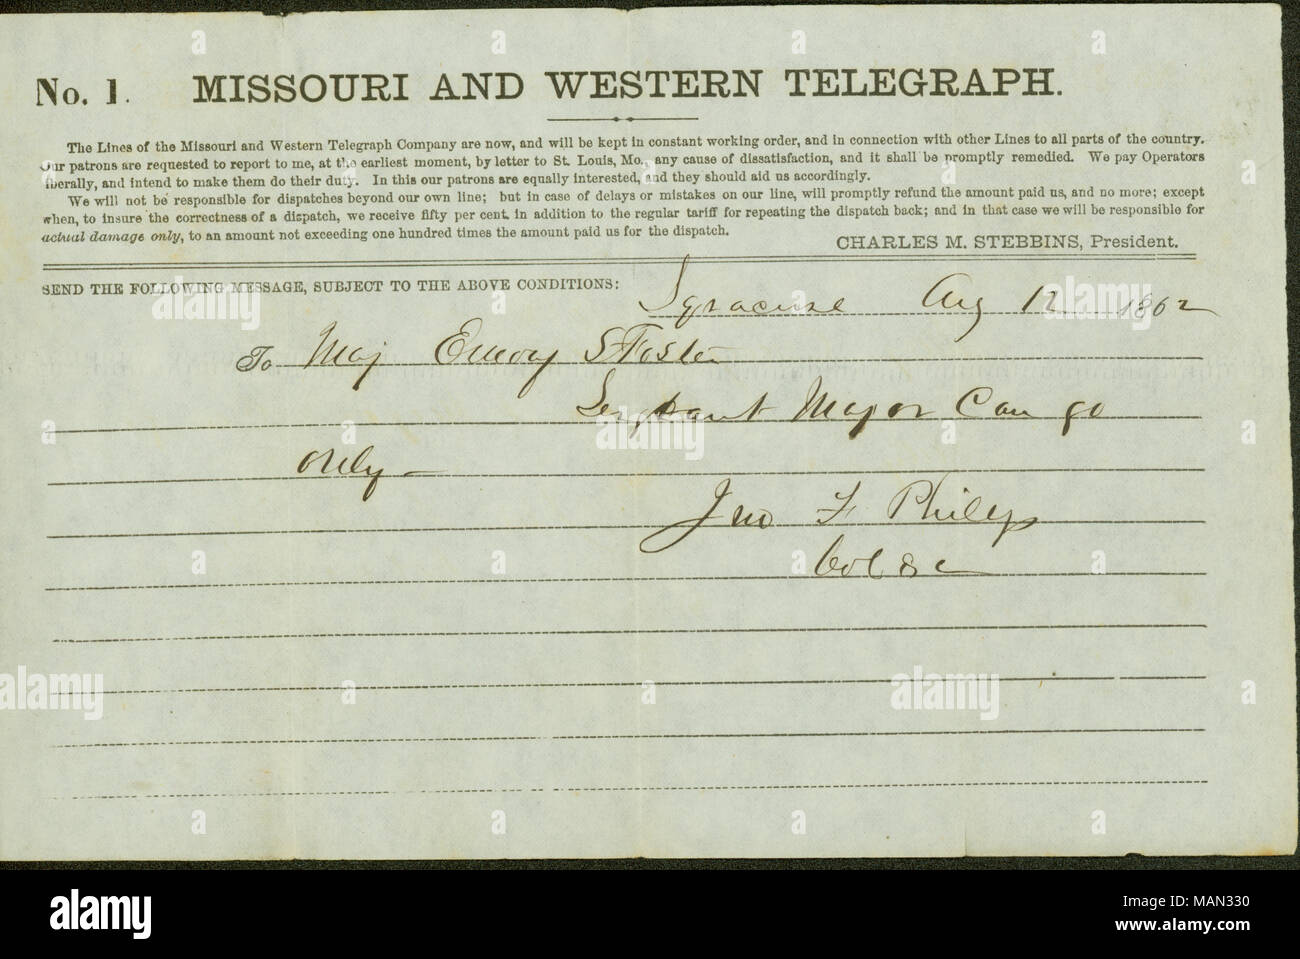 No. 1. MISSOURI AND WESTERN TELEGRAPH.
The Lines of the Missouri and Western Telegraph Company are now, and will be kept in constant working order, and in connection with other Lines to all parts of the country.
Our patrons are requested to report to me, at the earliest moment, by letter to St. Louis, Mo., any cause of dissatisfaction, and it shall be promptly remedied. We pay Operators
liberally, and intend to make them do their duty. In this our patrons are equally interested, and they should aid us accordingly.
We will not be responsible for dispatches beyond our own line; but in case of delays or mistakes on our line, will promptly refund the amount paid us, and no more; except
when, to insure the correctness of a dispatch, we receive fifty per cent. in addition to the regular tariff for repeating the dispatch back; and in that case we will be responsible for
actual damage only, to an amount not exceeding one hundred times the amount paid us for the dispatch.
CHARLES M. STEBBINS, President.
SEND THE FOLLOWING MESSAGE, SUBJECT TO THE ABOVE CONDITIONS:
Syracuse Aug 12 1862
To Maj Emory S Foster
Sergeant Major Can go
only —
Jno F Philips
Col &c
alamy
MAN330
www.alamy.com